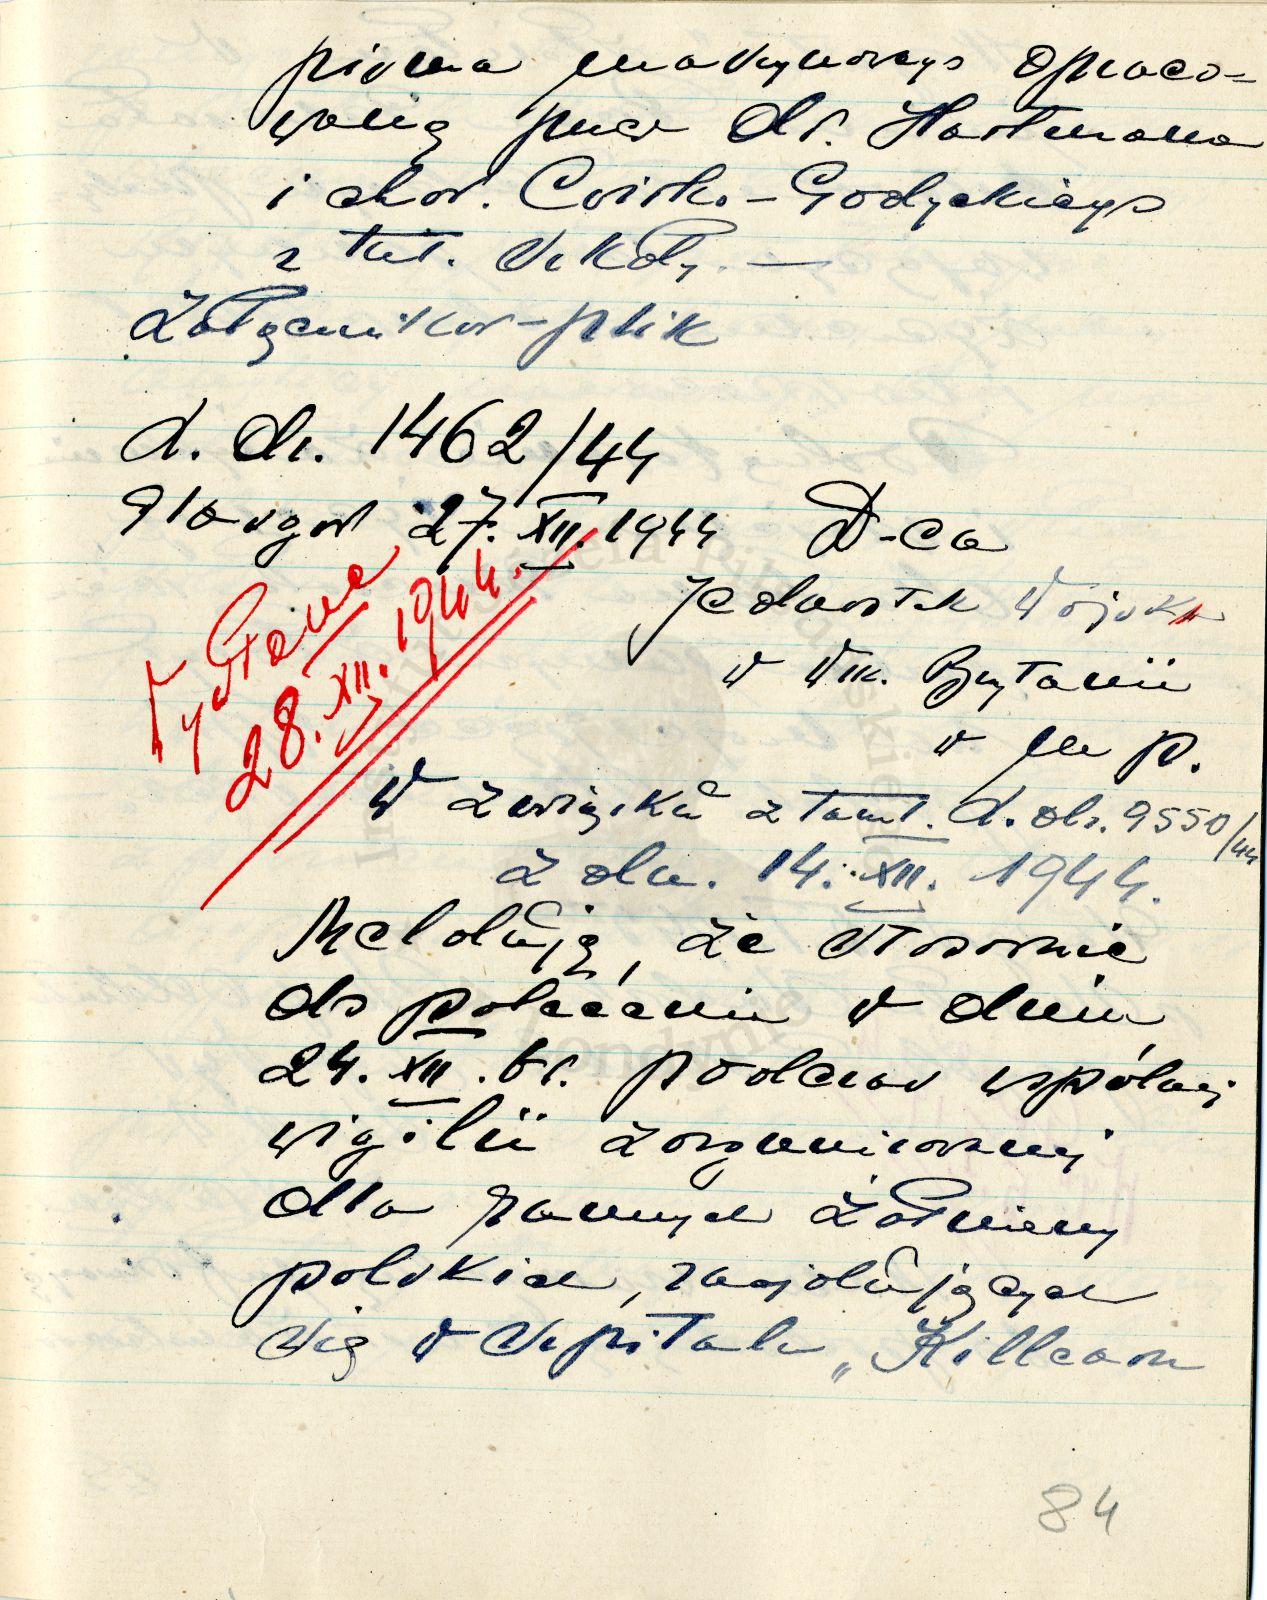 pisma maszynowego opraco-
wanie przez dr. Hartmana
i chor. Cwirko-Godyckiego
z tut. szkoły. —
Załączników - plik
L. dz. 1462/44
Glasgow 27.XII.1944 D-ca
Jednostek Wojsk
w Wlk. Brytanii
w m p.
Wysłano
28.XII.1944.
W związku z tamt. L. dz. 9550/44
z dn. 14.XII.1944.
Melduję, że stosownie
do polecenia w dniu
24.XII.br. podczas wspólnej
wigilii zorganizowanej
dla rannych żołnierzy
polskich, znajdujących
się w szpitalu „Killearn
84